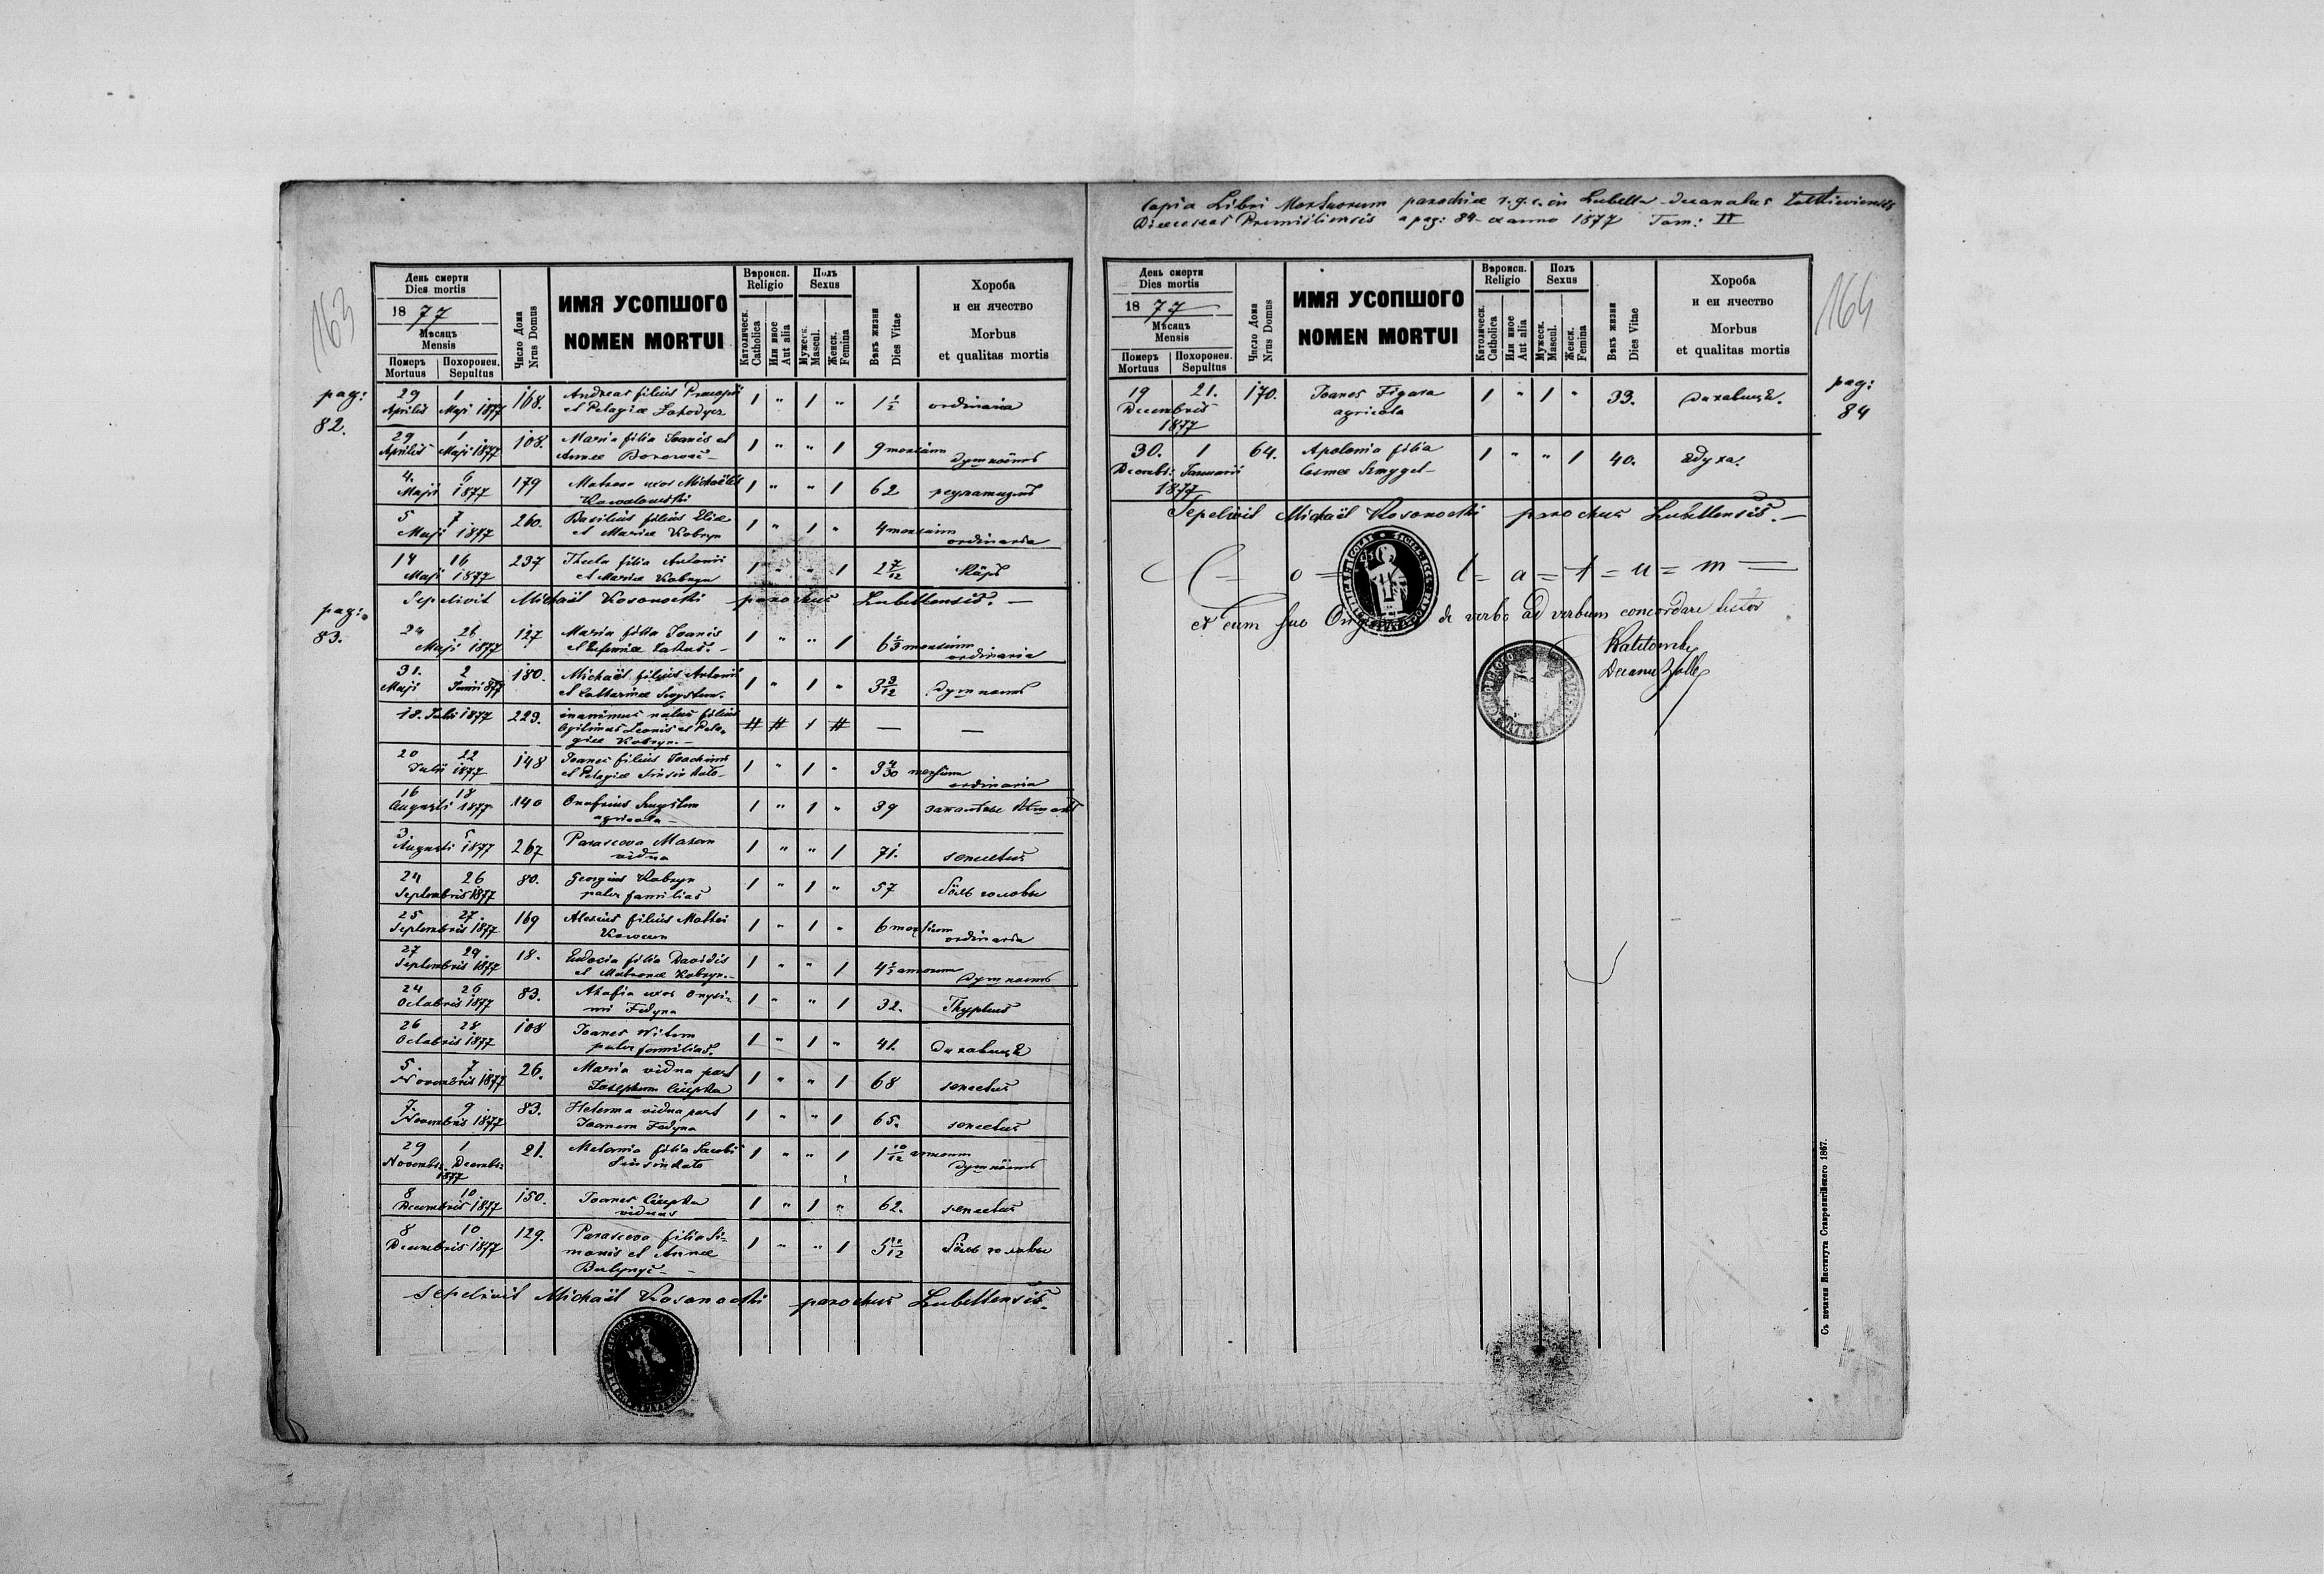 163
День смерти
Dies mortis
1877
Мѣсяцъ
Mensis
Померъ Похоронен.
Mortuus Sepultus
Число Дома
Nrus Domus
ИМЯ УСОПШОГО
NOMEN MORTUI
Вѣроисп.
Religio
Католическ.
Catholica
Или иное
Aut alia
Полъ
Sexus
Мужеск.
Mascul.
Женск.
Femina
Вѣкъ жизни
Dies Vitae
Хороба
и еи ячество
Morbus
et qualitas mortis
pag: 82.
29 Aprilis 1 Maji 1877 168. Andreas filius Procopii
et Pelagiæ 1 " 1 " 1 1/2 ordinaria
29 Aprilis 1 Maji 1877 108. Maria filia Joanis et
Annæ 1 " " 1 9 mensium
4. 6 Maji 1877 179 uxor Michaëlis
1 " " 1 62
5 7 Maji 1877 260. Basilius filius Eliæ
et Mariæ Kobryn 1 " 1 " 4 mensium ordinaria
14 16 Maji 1877 237 Thecla filia Antonii
et Mariæ Kobryn 1 " " 1 2 7/12
Sepelivit Michaël Kosonocki parochus Lubellensis. —
pag: 83.
24 26 Maji 1877 127 Maria filia Joanis
1 " " 1 6 1/3 mensium ordinaria
31. Maji 2 Junii 877 180. Michaël filius Antonii
et Catharinæ 1 " 1 " 3 3/12
18. Julii 1877 223. inanimus natus filius
legitimus Leonis et Pela-
giæ Kobryn. — # # 1 # — —
20 22 Julii 1877 148 Joanes filius Joachimi
et Pelagiæ 1 " 1 " mensium ordinaria
16 18 Augusti 1877 140 Onofrius
agricola 1 " 1 " 39
3 5 Augusti 1877 267 Parasceva Mazur
vidua 1 " " 1 71. senectus
24 26 Septembris 1877 80. Georgius Kobryn
pater familias 1 " 1 " 57 бôль головы
25 27. Septembris 1877 169 Alexius filius Mathei
1 " 1 " 6 mensium ordinaria
27 29. Septembris 1877 18. Eudocia filia Davidis
et Matronæ Kobryn. — 1 " " 1 annorum
24 26 Octobris 1877 83. Ahafia uxor Onysi-
mi Fedyna 1 " " 1 32. Thyphus
26 28 Octobris 1877 108 Joanes Witer
pater familias. 1 " 1 " 41. духавиця
5. 7 Novembris 1877 26. Maria vidua post
Josephum Ciupka 1 " " 1 68 senectus
7. 9 Novembris 1877 83. Helena vidua post
Joanem Fedyna 1 " " 1 65. senectus
29 Novembr: 1 Decembr: 1877 21. Melania filia Jacobi
1 " " 1 1 10/12 annorum
8 10 Decembris 1877 150. Joanes Ciupka
viduus 1 " 1 " 62. senectus
8 10 Decembris 1877 129. Parasceva filia Si-
monis et Annæ
1 " " 1 бôль головы
Sepelivit Michaël Kosonocki parochus Lubellensis.
Copia Libri Mortuorum parochiæ r. g. c. in Lubella Decanatus Zolkieviensis
Dioeceseos Premisliensis a pag: 84 ex anno 1877 Tom: II
164
День смерти
Dies mortis
1877
Мѣсяцъ
Mensis
Померъ Похоронен.
Mortuus Sepultus
Число Дома
Nrus Domus
ИМЯ УСОПШОГО
NOMEN MORTUI
Вѣроисп.
Religio
Католическ.
Catholica
Или иное
Aut alia
Полъ
Sexus
Мужеск.
Mascul.
Женск.
Femina
Вѣкъ жизни
Dies Vitae
Хороба
и еи ячество
Morbus
et qualitas mortis
pag: 84
19 21. Decembris 1877 170. Joanes Figura
agricola 1 " 1 " 33. духавиця.
30. Decembr: 1 Januarii 1877 64. Apolonia filia
Cosmæ Szmygel — 1 " " 1 40. ядуха.
Sepelivit Michaël Kosonocki parochus Lubellensis. —
C = o = l = a = t = u = m =
et cum suo de verbo ad verbum concordare testor
Съ печатни Института Ставропигійского 1867.